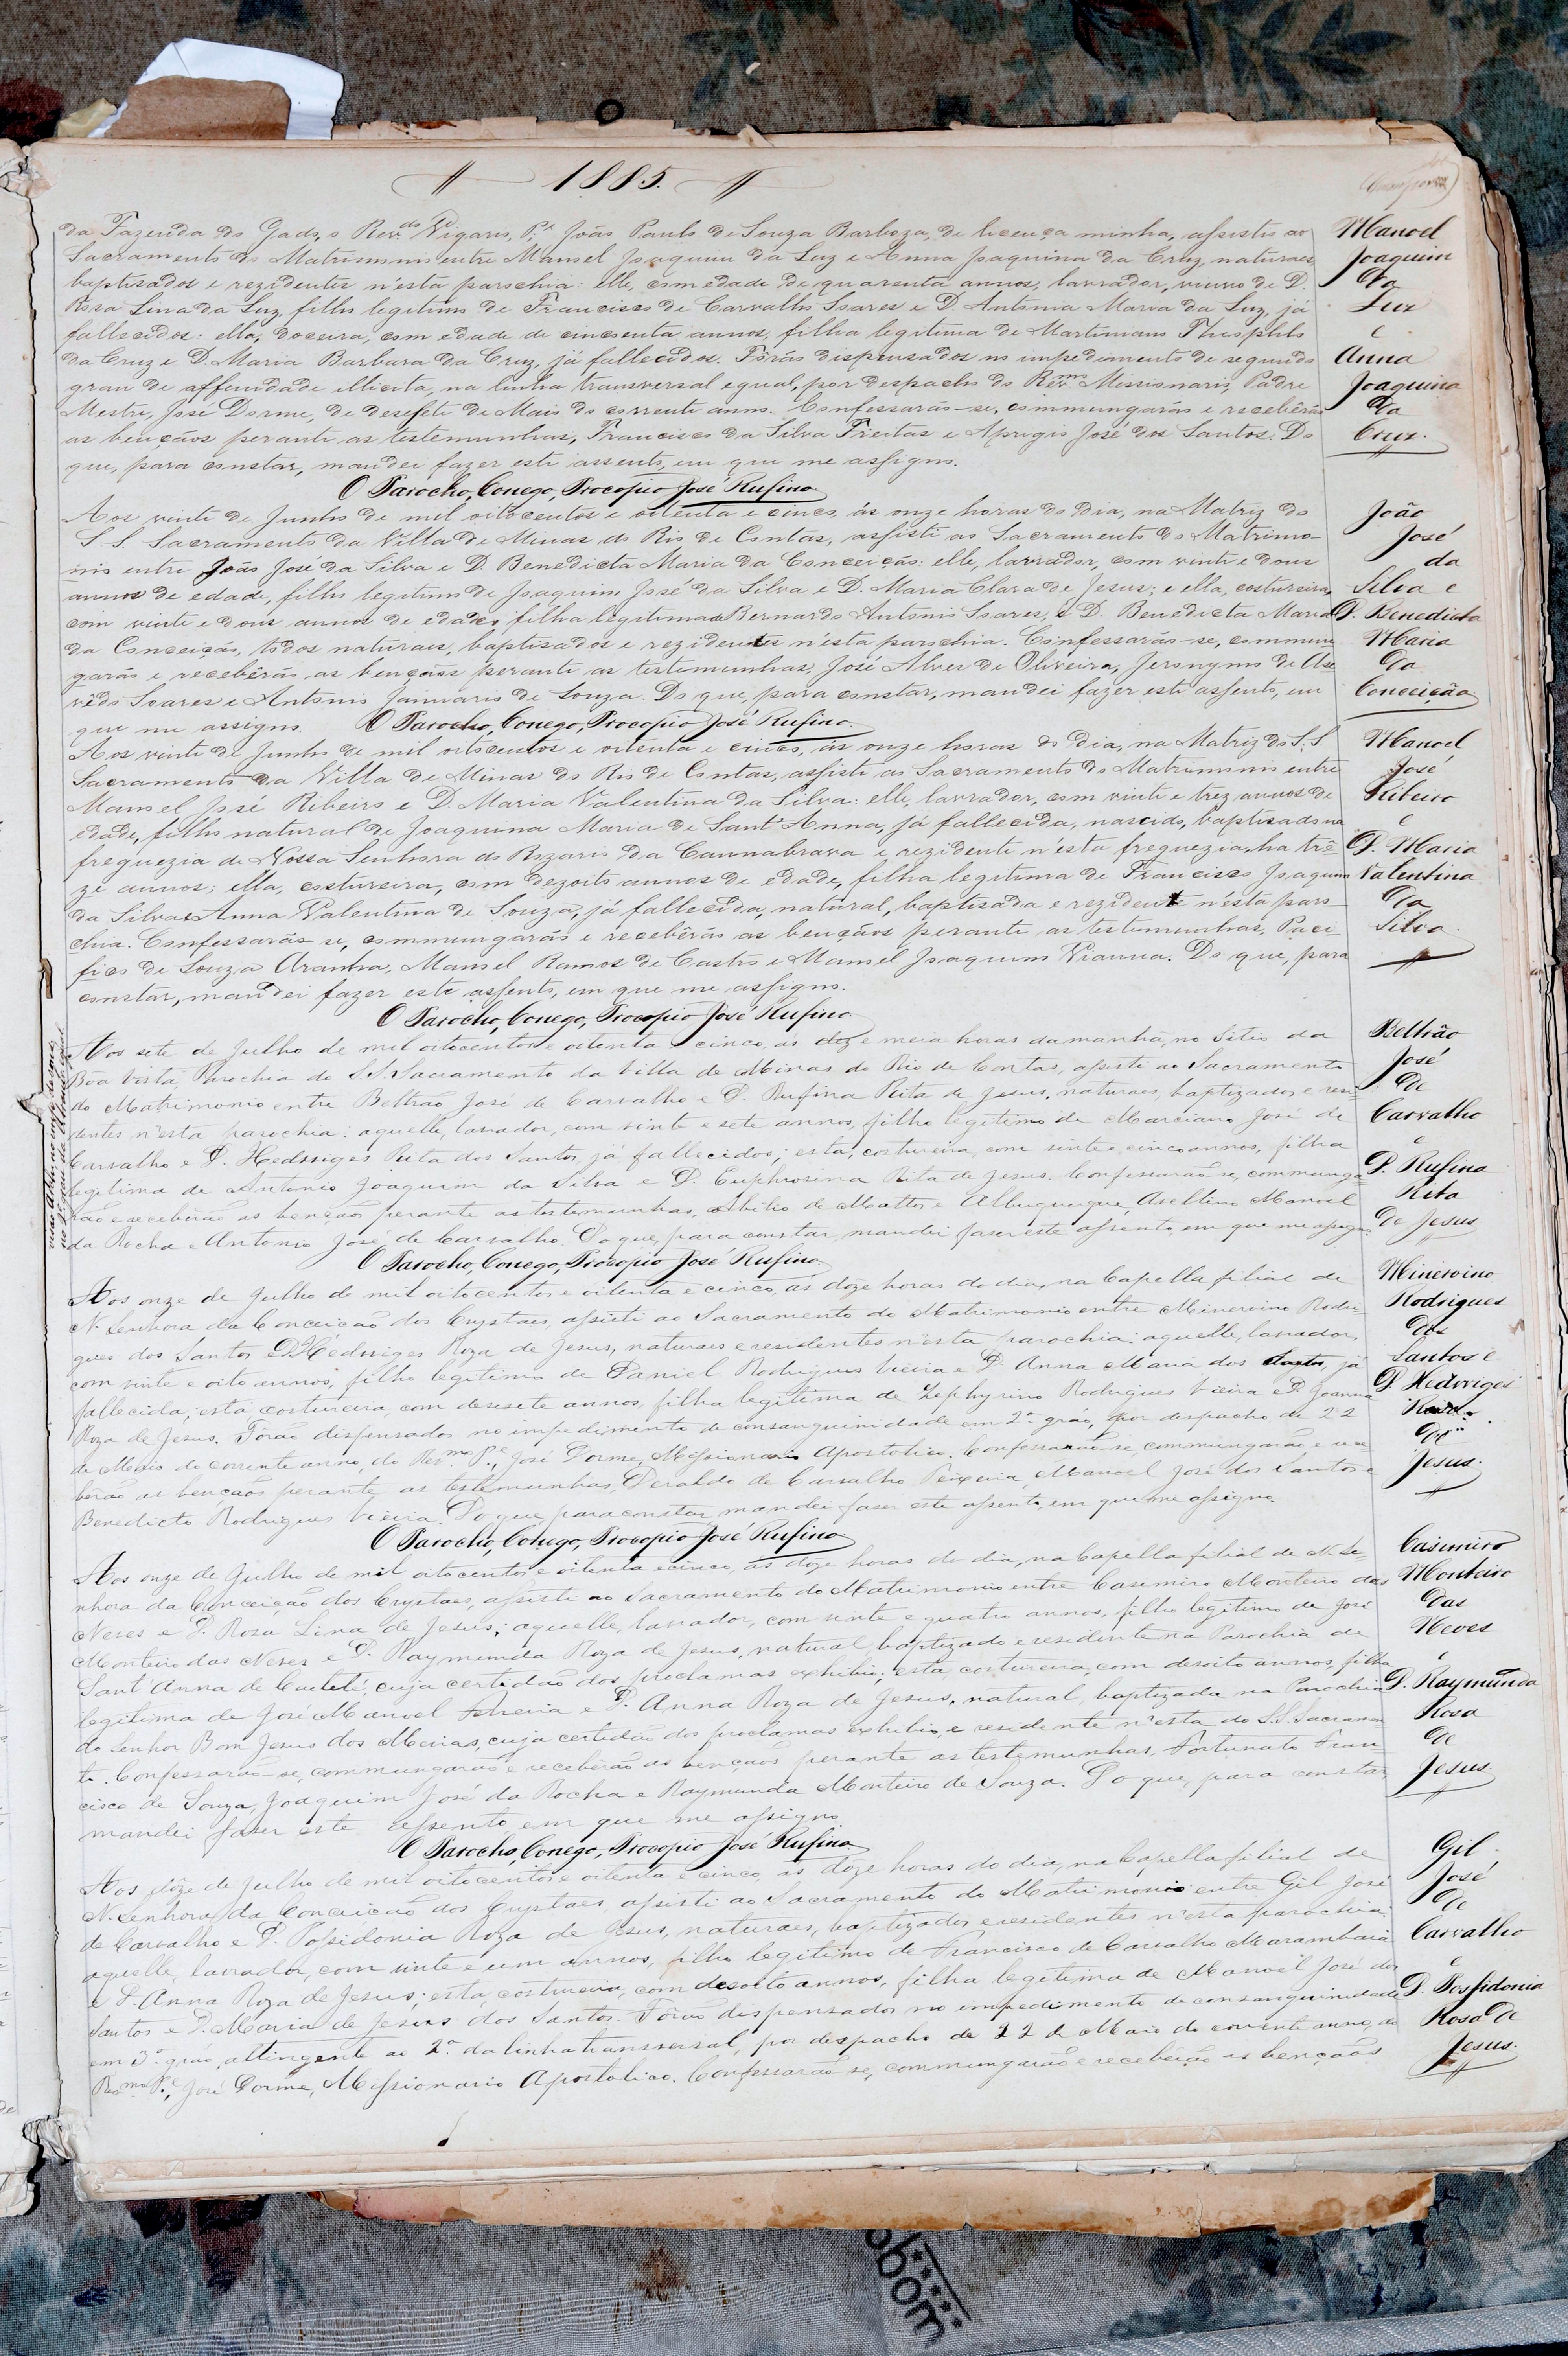 1885.
da Fazenda do Gado, o Rev.do Vigario, P.e João Paulo de Souza Barboza, de licença minha, assistio ao
Sacramento do Matrimonio entre Manoel Joaquim da Luz e Anna Joaquina da Cruz, naturaes,
baptisados e rezidentes n'esta parochia: elle, com edade de quarenta annos, lavrador, viuvo de D.
Rosa Lina da Luz, filho legitimo de Francisco de Carvalho Soares e D. Antonia Maria da Luz, já
fallecidos: ella, doceira, com edade de cincoenta annos, filha legitima de Martiniano Theophilo
da Cruz e D. Maria Barbara da Cruz, já fallecidos. Fôrão dispensados no impedimento de segundo
grau de affinidade illicita, na linha transversal egual, por despacho do Rev.mo Missionario, Padre
Mestre, José Dorme, de desesete de Maio do corrente anno. Confessarão-se, commungarão e recebêrão
as bençãos perante as testemunhas, Francisco da Silva Freitas e Aprigio José dos Santos. Do
que, para constar, mandei fazer este assento, em que me assigno.
O Parocho, Conego, Procopio José Rufino
Manoel
Joaquim
da
Luz
e
Anna
Joaquina
da
Cruz.
Aos vinte de Junho de mil oitocentos e oitenta e cinco, ás onze horas do dia, na Matriz do
S S. Sacramento da Villa de Minas do Rio de Contas, assisti ao Sacramento do Matrimo-
nio entre João José da Silva e D. Benedicta Maria da Conceição: elle, lavrador, com vinte e dous
annos de edade, filho legitimo de Joaquim José da Silva e D. Maria Clara de Jesus; e ella, costureira,
com vinte e dous annos de edade, filha legitima de Bernardo Antonio Soares, e D. Benedicta Maria
da Conceição, todos naturaes, baptisados e rezidentes n'esta parochia. Confessarão-se, commun
garão e recebêrão as bençãos perante as testemunhas, José Alves de Oliveira, Jeronymo de Aze
vêdo Soares e Antonio Januario de Souza. Do que, para constar, mandei fazer este assento, em
que me assigno. O Parocho, Conego, Procopio José Rufino
João
José
da
Silva e
D. Benedicta
Maria
da
Conceição
Aos vinte de Junho de mil oitocentos e oitenta e cinco, ás onze horas do dia, na Matriz do S. S
Sacramento da Villa de Minas do Rio de Contas, assisti ao Sacramento do Matrimonio entre
Manoel José Ribeiro e D. Maria Valentina da Silva: elle, lavrador, com vinte e trez annos de
edade, filho natural de Joaquina Maria de Sant'Anna, já fallecida, nascido, baptisado na
freguezia de Nossa Senhora do Rozario da Cannabrava e rezidente n'esta freguezia, ha trê-
ze annos; ella, costureira, com dezoito annos de edade, filha legitima de Francisco Joaquim
da Silva e Anna Valentina de Souza, já fallecida, natural, baptisada e rezidente n'ésta paro-
chia. Confessarão-se, commungarão e recebêrão as bençãos perante as testemunhas, Paci
fico de Souza Aranha, Manoel Ramos de Castro e Manoel Joaquim Vianna. Do que, para
constar, mandei fazer este assento, em que me assigno.
O Parocho, Conego, Procopio José Rufino
Manoel
José
Ribeiro
e
D. Maria
Valentina
da
Silva.
Aos sete de Julho de mil oitocentos e oitenta e cinco, as dez e meia horas da manhã, no Sitio da
Bôa Vista, Parochia do S.S. Sacramento da Villa de Minas do Rio de Contas, assisti ao Sacramento
do Matrimonio entre Beltrão José de Carvalho e D. Rufina Rita de Jesus, naturaes, baptizados e resi
dentes n'esta parochia: aquelle, lavrador, com vinte e sete annos, filho legitimo de Marciano José de
Carvalho e D. Hedwiges Rita dos Santos, já fallecidos; esta, costureira, com vinte e cinco annos, filha
legitima de Antonio Joaquim da Silva e D. Euphrosina Rita de Jesus. Confessarão-se, communga
rão e receberão as bençãos perante as testemunhas, Abilio de Mattos e Albuquerque, Avellino Manoel
da Rocha e Antonio José de Carvalho. Do que, para constar, mandei faser este assento, em que me assigno.
O Parocho, Conego, Procopio José Rufino
Beltrão
José
de
Carvalho
e
D. Rufina
Rita
de Jesus
Aos onze de Julho de mil oitocentos e oitenta e cinco, as doze horas do dia, na Capella filial de
N. Senhora da Conceição dos Crystaes, assisti ao Sacramento do Matrimonio entre Minervino Rodri
gues dos Santos e D. Hédwiges Roza de Jesus, naturaes e residentes n'esta parochia: aquelle, lavrador,
com vinte e oito annos, filho legitimo de Daniel Rodrigues Vieira e D. Anna Maria dos Santos, já
fallecida; esta, costureira, com desesete annos, filha legitima de Zephyrino Rodrigues Vieira e D. Joanna
Roza de Jesus. Fôrão dispensados no impedimento de consanguinidade em 2.º gráo, por despacho de 22
de Maio do corrente anno, do Rev.mo P.e, José Dorme, Missionario Apostolico. Confessarão-se, commungarão, e rece
berão as bençãos perante as testemunhas, Deraldo de Carvalho Teixeira, Manoel José dos Santos e
Benedicto Rodrigues Vieira. Do que para constar, mandei faser este assento, em que me assigno.
O Parocho, Conego, Procopio José Rufino
Minervino
Rodrigues
dos
Santos e
D. Hedwiges
de
Jesus.
Aos onze de Julho de mil oitocentos e oitenta e cinco, as doze horas do dia, na Capella filial de N. Se-
nhora da Conceição dos Crystaes, assisti ao Sacramento do Matrimonio entre Casemiro Monteiro das
Neves e D. Rosa Lina de Jesus; aquelle, lavrador, com vinte e quatro annos, filho legitimo de José
Monteiro das Neves e D. Raymunda Roza de Jesus, natural, baptizado e residente na Parochia de
Sant'Anna de Caeteté, cuja certidão dos proclamas exhibio; esta, costureira, com desoito annos, filha
legitima de José Manoel e D. Anna Roza de Jesus, natural, baptizada na Parochia
do Senhor Bom Jesus dos Meiras, cuja certidão dos proclamas exhibio, e residente n'esta do S.S. Sacramen
to. Confessarão-se, commungarão e receberão as bençãos perante as testemunhas, Fortunato Fran-
cisco de Souza, Joaquim José da Rocha e Raymunda Monteiro de Souza. Do que, para constar,
mandei faser este assento em que me assigno.
O Parocho, Conego, Procopio José Rufino
Casimiro
Monteiro
das
Neves
e
D. Raymunda
Rosa
de
Jesus.
Aos dôze de Julho de mil oitocentos e oitenta e cinco, as doze horas do dia, na Capella filial de
N. Senhora da Conceição dos Crystaes, assisti ao Sacramento do Matrimonio entre Gil José
de Carvalho e D. Possidonia Roza de Jesus, naturaes, baptizados, e residentes n'esta parochia:
aquelle, lavrador, com vinte e um annos, filho legitimo de Francisco de Carvalho Marambaia
e D. Anna Roza de Jesus; esta, costureira, com desoito annos, filha legitima de Manoel José dos
Santos e D. Maria de Jesus dos Santos. Fôrão dispensados no impedimento de consanguinidade
em 3.º gráo, attingente ao 2.º da linha transversal, por despacho de 22 de Maio do corrente anno, do
Rev.mo P.e, José Dorme, Missionario Apostolico. Confessarão-se, commungarão e receberão as bençãos
Gil
José
de
Carvalho
e
D. Possidonia
Rosa de
Jesus.